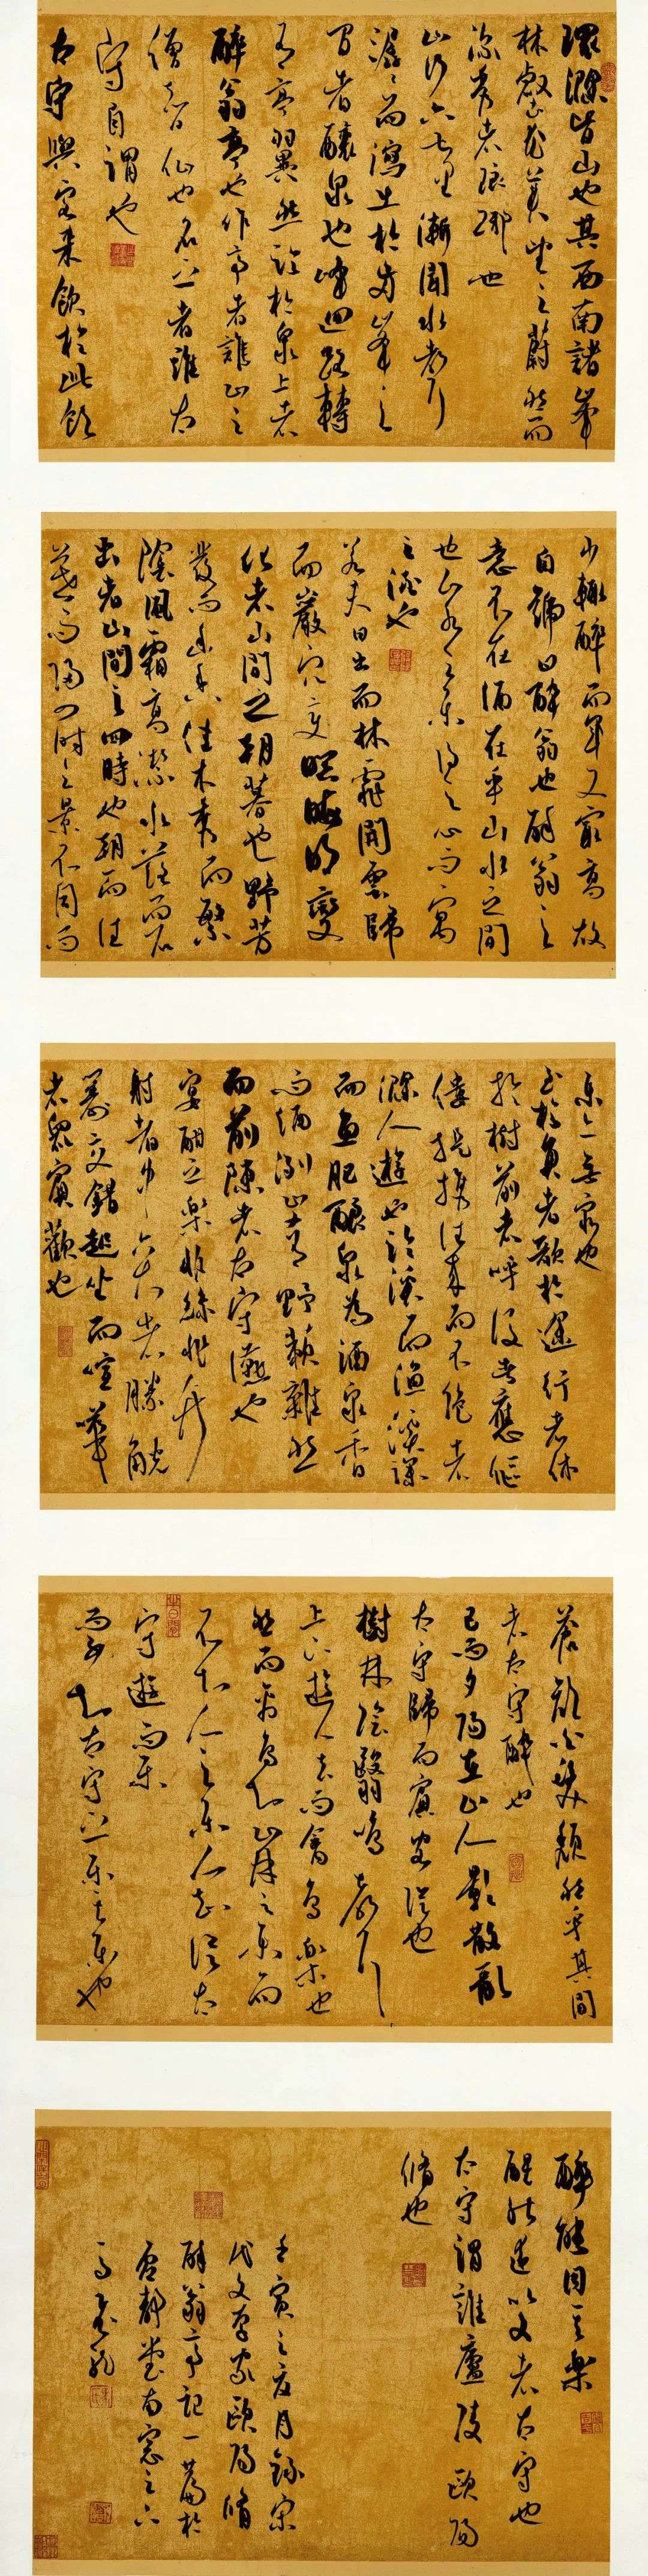 環滁皆山也其西南諸峯
林壑尤美望之蔚然而
深秀者琅琊也
山行六七里漸聞水聲
潺潺而瀉出於兩峯之
間者釀泉也峰迴路轉
有亭翼然臨於泉上者
醉翁亭也作亭者誰山之
僧智仙也名之者誰太
守自謂也
太守與客來飲於此飲
少輒醉而年又最高故
自號曰醉翁也醉翁之
意不在酒在乎山水之間
也山水之樂得之心而寓
之酒也
若夫日出而林霏開雲歸
而巖穴暝晦明變
化者山間之朝暮也野芳
發而幽香佳木秀而繁
陰風霜高潔水落而石
出者山間之四時也朝而往
暮而歸四時之景不同而
樂亦無窮也
至於負者歌於途行者休
於樹前者呼後者應傴
僂提攜往來而不絕者
滁人遊也臨溪而漁溪深
而魚肥釀泉為酒泉香
而酒洌山肴野蔌雜然
而前陳者太守讌也
宴酣之樂非絲非竹
射者中弈者勝觥
籌交錯起坐而喧嘩
者眾賓歡也
蒼顏白髮頹然乎其間
者太守醉也
已而夕陽在山人影散亂
太守歸而賓客從也
樹林陰翳鳴聲
上下遊人去而禽鳥樂也
然而禽鳥知山林之樂而
不知人之樂人知從太
守遊而樂
而不知太守之樂其樂也
醉能同其樂
醒能述以文者太守也
太守謂誰廬陵歐陽
脩也
壬寅之夏月錄宋
代文學家歐陽脩
醉翁亭記一篇於
堂南窓之下